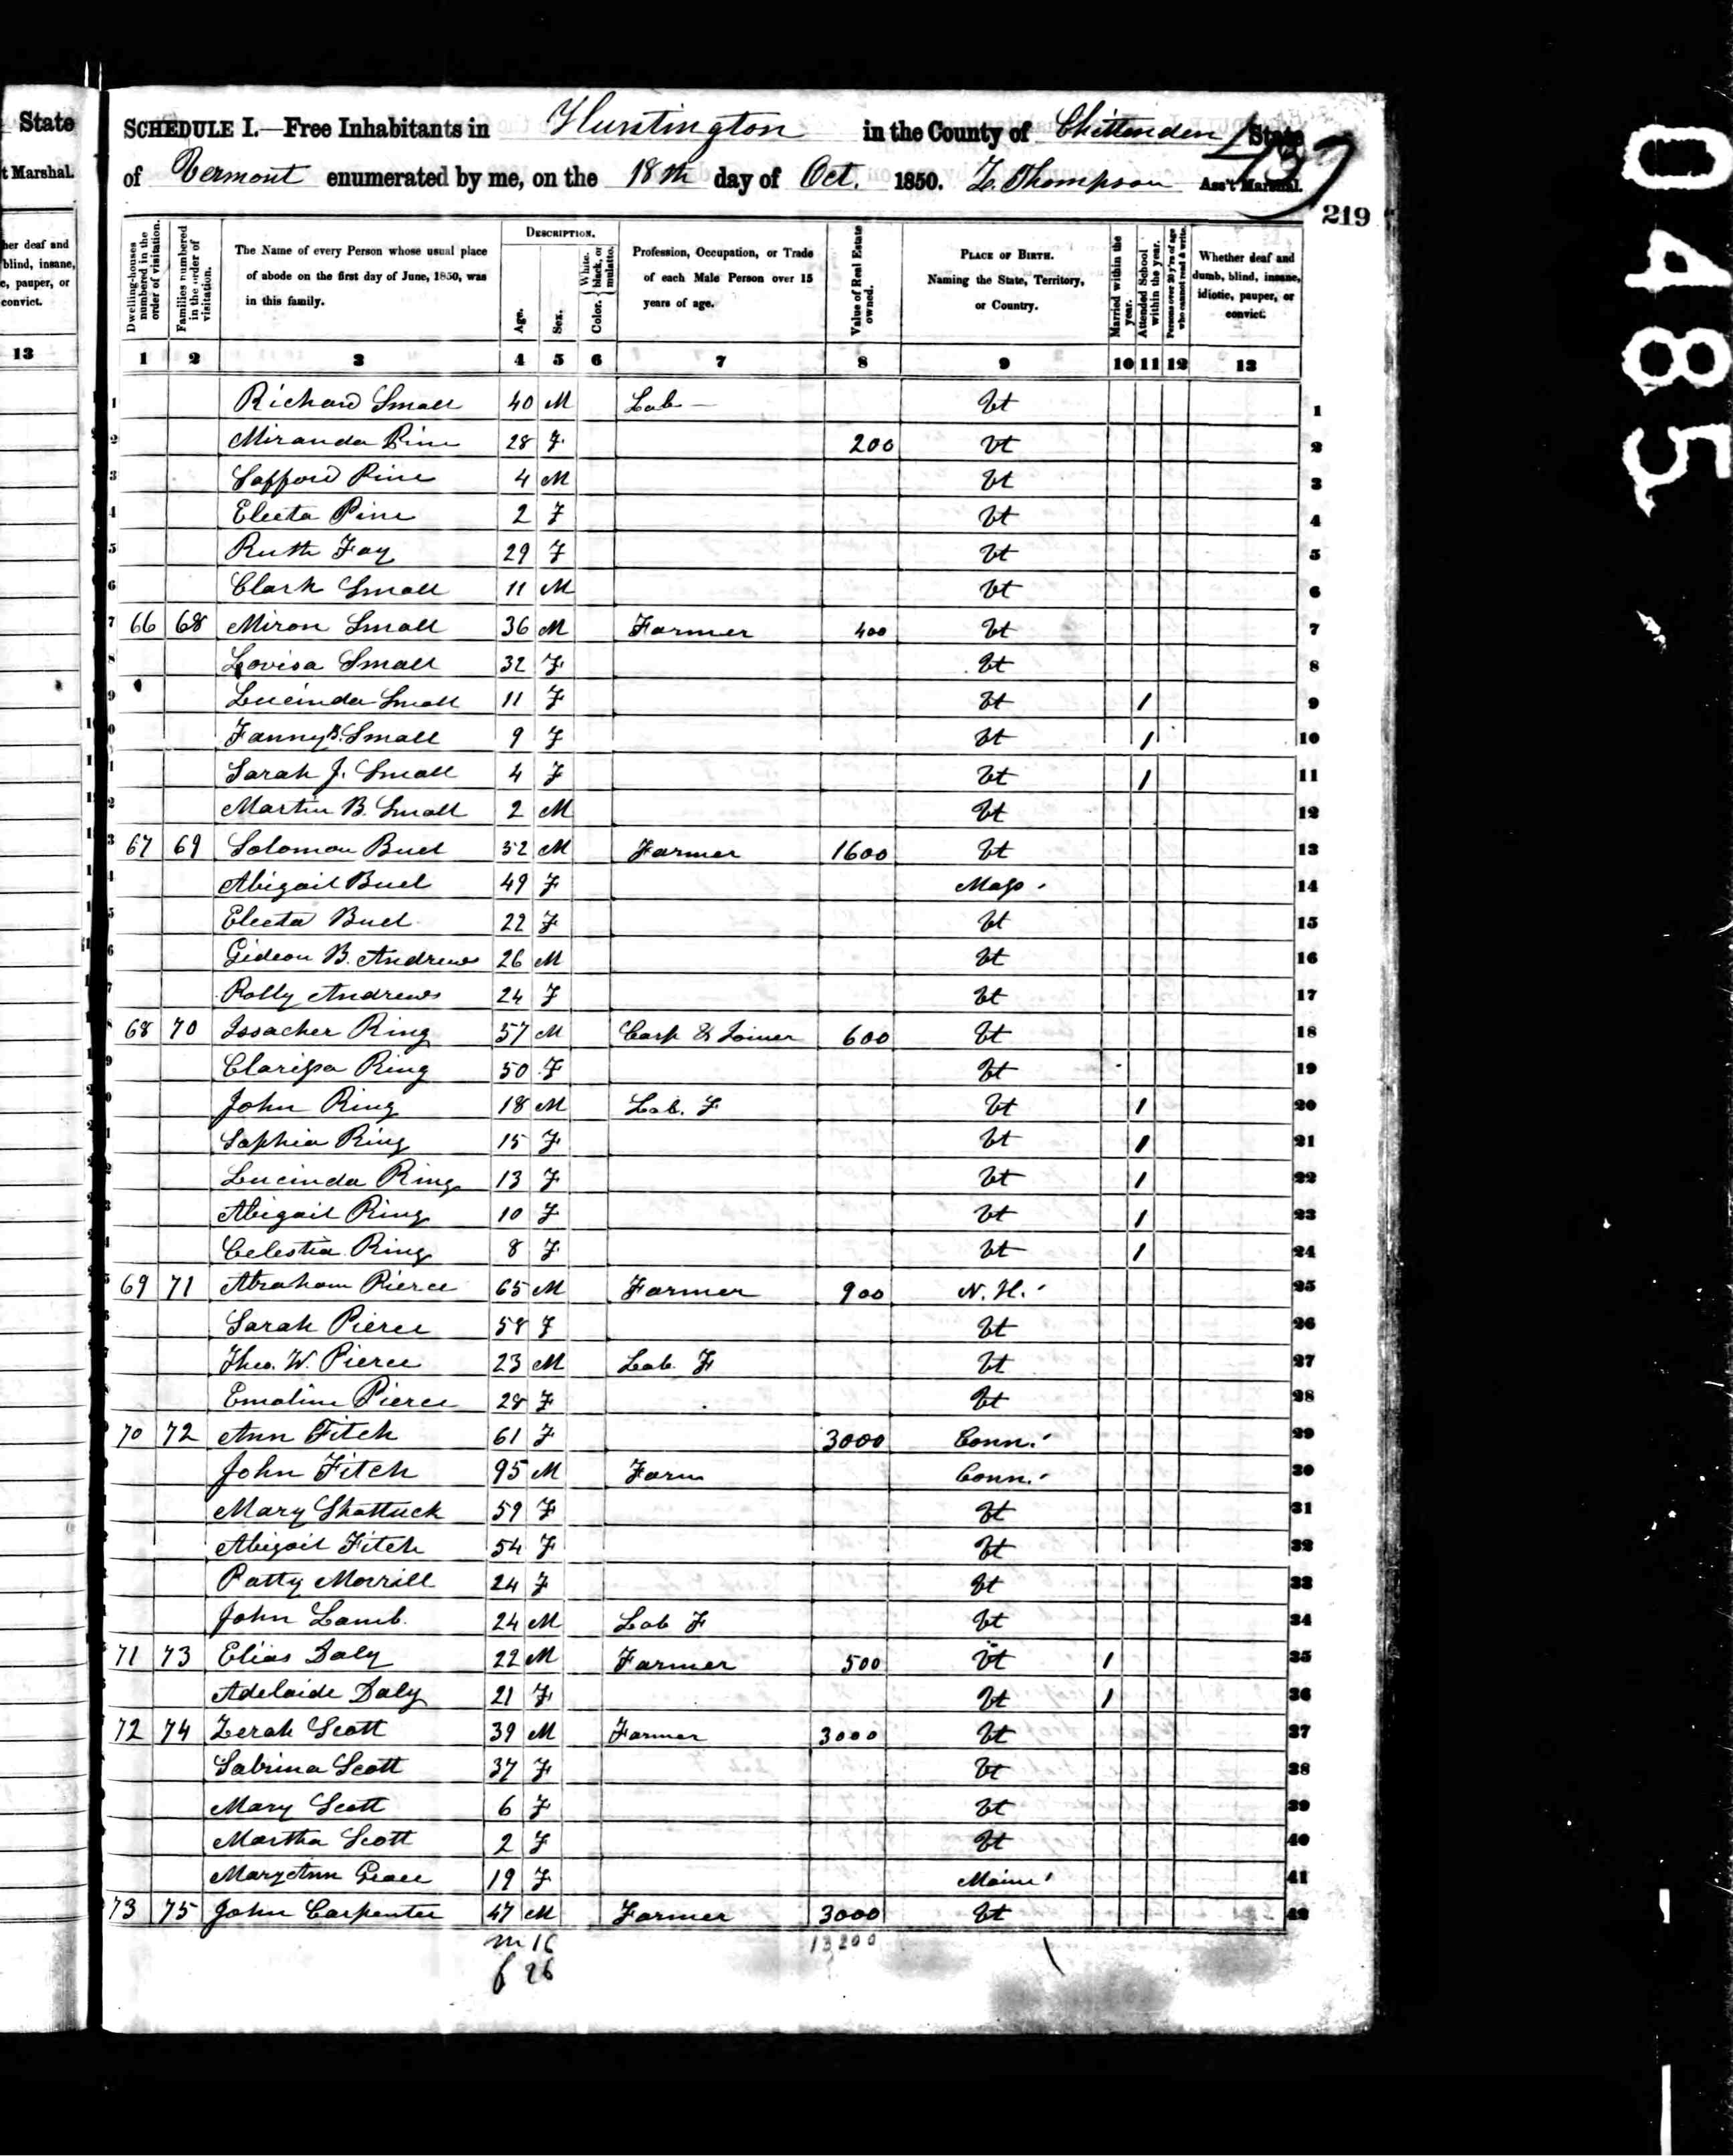 State
t Marshal.
her deaf and
blind, insane,
c, pauper, or
convict.
13
SCHEDULE I.—Free Inhabitants in Huntington in the County of Chittenden State
of Vermont enumerated by me, on the 18th day of Oct. 1850. Z. Thompson Ass't Marshal.
219
Dwelling-houses numbered in the order of visitation.
Families numbered in the order of visitation.
The Name of every Person whose usual place of abode on the first day of June, 1850, was in this family.
DESCRIPTION.
Age.
Sex.
Color. White, black, or mulatto.
Profession, Occupation, or Trade of each Male Person over 15 years of age.
Value of Real Estate owned.
PLACE OF BIRTH. Naming the State, Territory, or Country.
Married within the year.
Attended School within the year.
Persons over 20 y'rs of age who cannot read & write.
Whether deaf and dumb, blind, insane, idiotic, pauper, or convict.
1 2 3 4 5 6 7 8 9 10 11 12 13
1 Richard Small 40 M Lab — Vt 1
2 Miranda Pine 28 F 200 Vt 2
3 Safford Pine 4 M Vt 3
4 Electa Pine 2 F Vt 4
5 Ruth Fay 29 F Vt 5
6 Clark Small 11 M Vt 6
7 66 68 Miron Small 36 M Farmer 400 Vt 7
8 Lovisa Small 32 F Vt 8
9 Lucinda Small 11 F Vt 1 9
10 Fanny B. Small 9 F Vt 1 10
11 Sarah J. Small 4 F Vt 1 11
12 Martin B. Small 2 M Vt 12
13 67 69 Solomon Buel 52 M Farmer 1600 Vt 13
Abigail Buel 49 F Mass 14
Electa Buel 22 F Vt 15
Gideon B. Andrews 26 M Vt 16
Polly Andrews 24 F Vt 17
68 70 Issacher Ring 57 M Carp & Joiner 600 Vt 18
Clarissa Ring 50 F Vt 19
John Ring 18 M Lab. F Vt 1 20
Sophia Ring 15 F Vt 1 21
Lucinda Ring 13 F Vt 1 22
Abigail Ring 10 F Vt 1 23
Celestia Ring 8 F Vt 1 24
69 71 Abraham Pierce 65 M Farmer 900 N. H. 25
Sarah Pierce 58 F Vt 26
Theo. W. Pierce 23 M Lab. F Vt 27
Emoline Pierce 28 F Vt 28
70 72 Ann Fitch 61 F 3000 Conn. 29
John Fitch 95 M Farm Conn. 30
Mary Shattuck 59 F Vt 31
Abigail Fitch 54 F Vt 32
Patty Morrill 24 F Vt 33
John Lamb. 24 M Lab F Vt 34
71 73 Elias Daly 22 M Farmer 500 Vt 1 35
Adelaide Daly 21 F Vt 1 36
72 74 Zerah Scott 39 M Farmer 3000 Vt 37
Sabrina Scott 37 F Vt 38
Mary Scott 6 F Vt 39
Martha Scott 2 F Vt 40
Mary Ann Grace 19 F Maine 41
73 75 John Carpenter 47 M Farmer 3000 Vt 42
m 16 13200
f 26
0485